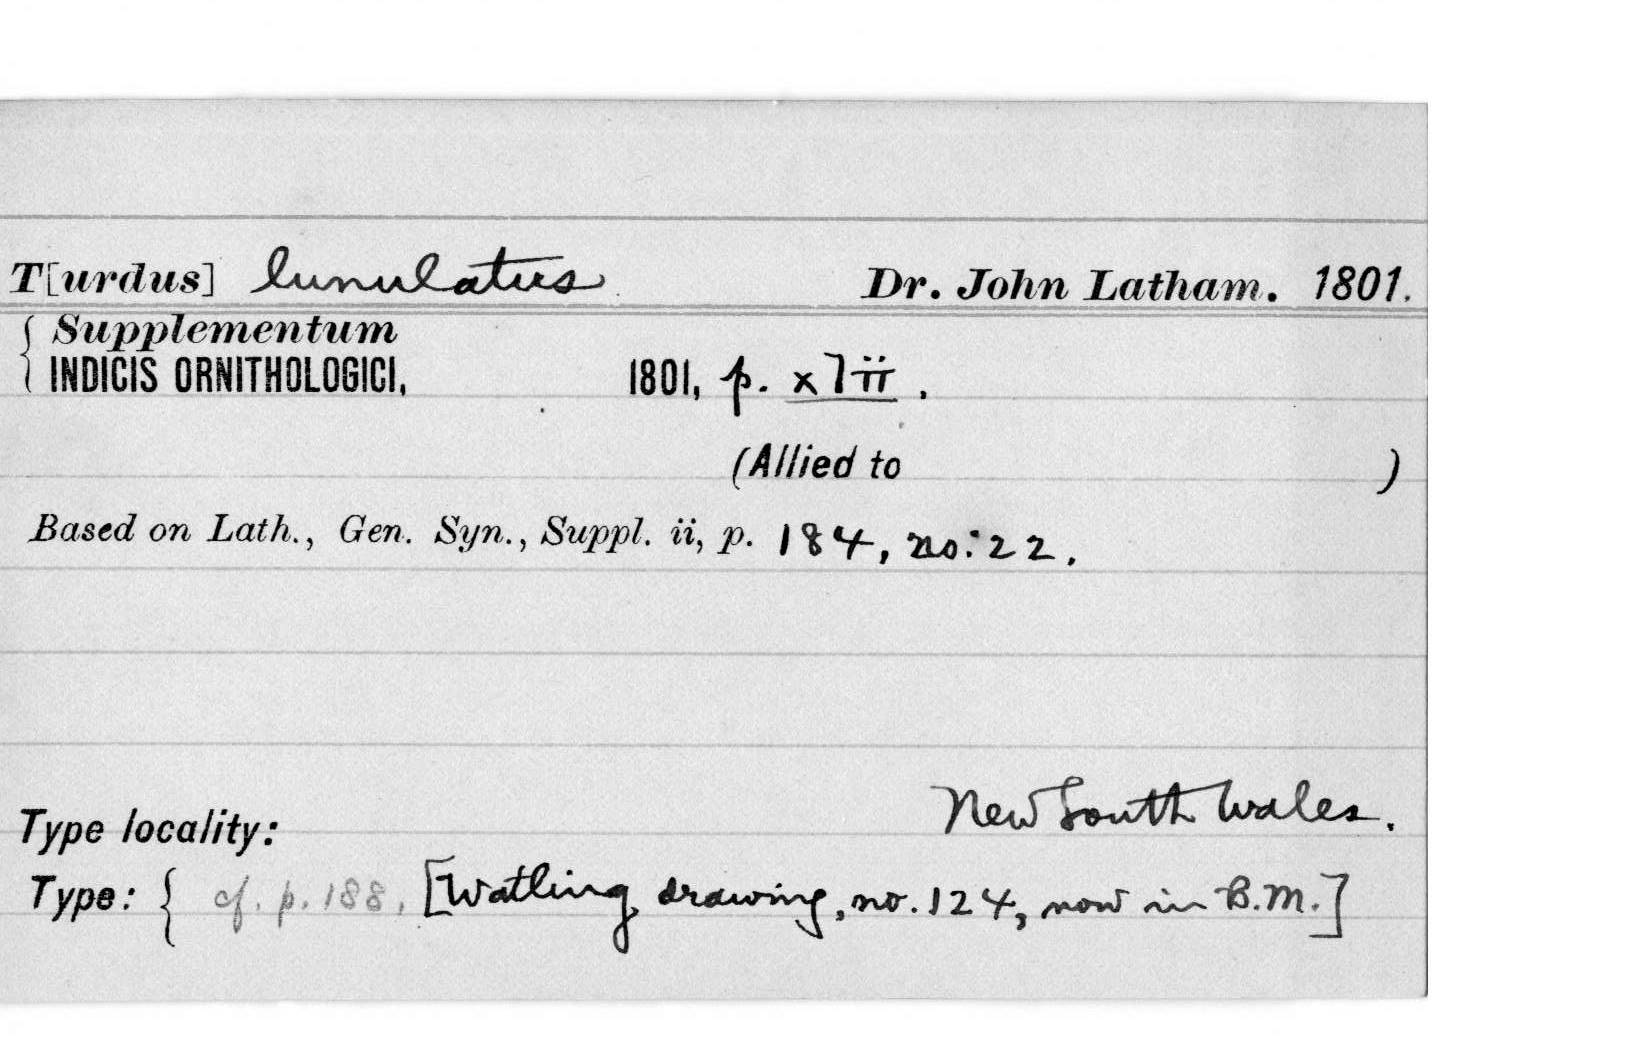 T[urdus] lunulatus. Dr. John Latham. 1801.
{ Supplementum
{ INDICIS ORNITHOLOGICI, 1801, p. xlii.
(Allied to )
Based on Lath., Gen. Syn., Suppl. ii, p. 184, no. 22.
New South Wales.
Type locality:
Type: { cf. p. 188, [Watling drawing, no. 124, now in B.M.]